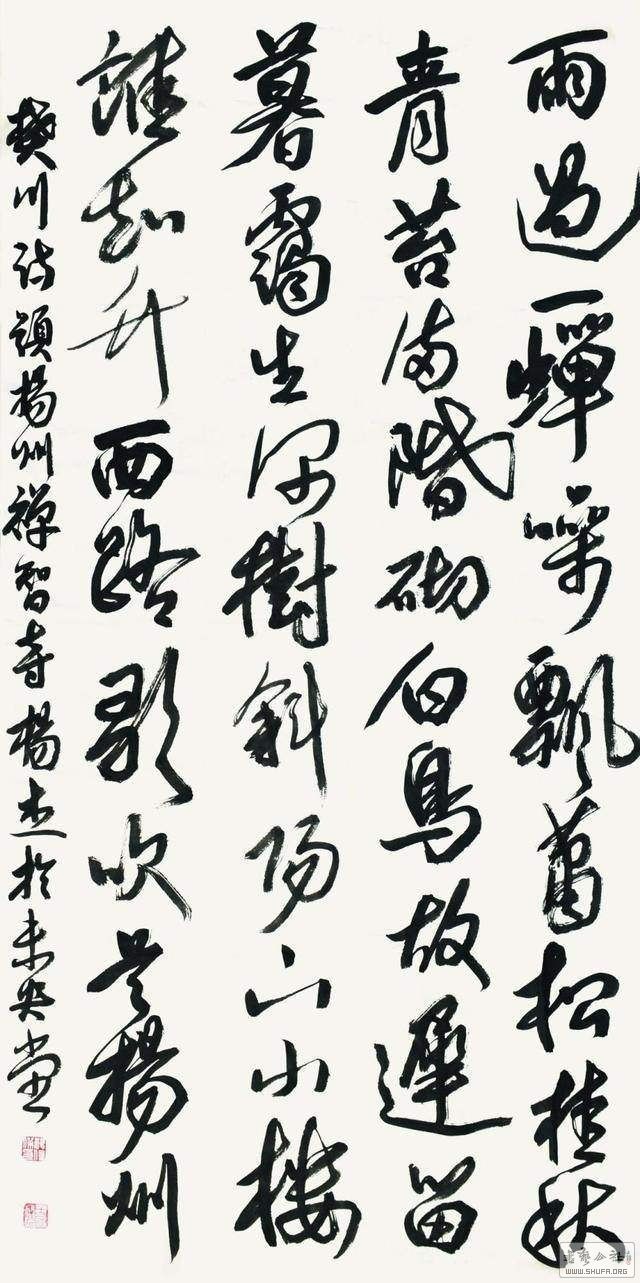 雨過一蟬噪飄蕭松桂秋
青苔滿階砌白鳥故遲留
暮靄生深樹斜陽下小樓
誰知竹西路歌吹是揚州
樊川詩題揚州禪智寺楊杰於未央堂
WWW.SHUFA.ORG